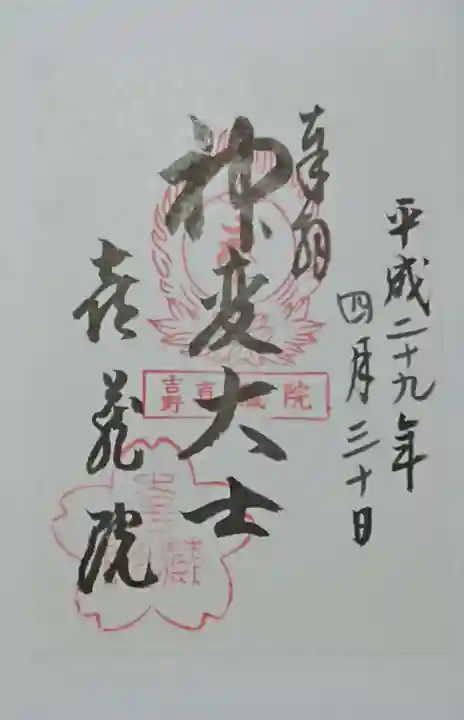 平成二十九年
四月三十日
奉拝
神変大士
喜蔵院
吉野 喜蔵院